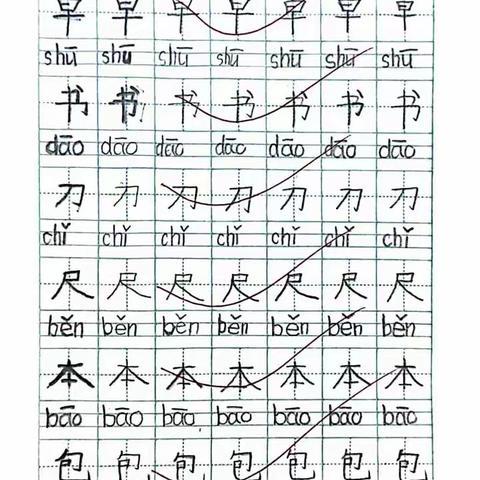 早 早 早 早 早 早 早
shū shū shū shū shū shū shū
书 书 书 书 书 书 书
dāo dāo dāo dāo dāo dāo dāo
刀 刀 刀 刀 刀 刀 刀
chǐ chǐ chǐ chǐ chǐ chǐ chǐ
尺 尺 尺 尺 尺 尺 尺
běn běn běn běn běn běn běn
本 本 本 本 本 本 本
bāo bāo bāo bāo bāo bāo bāo
包 包 包 包 包 包 包